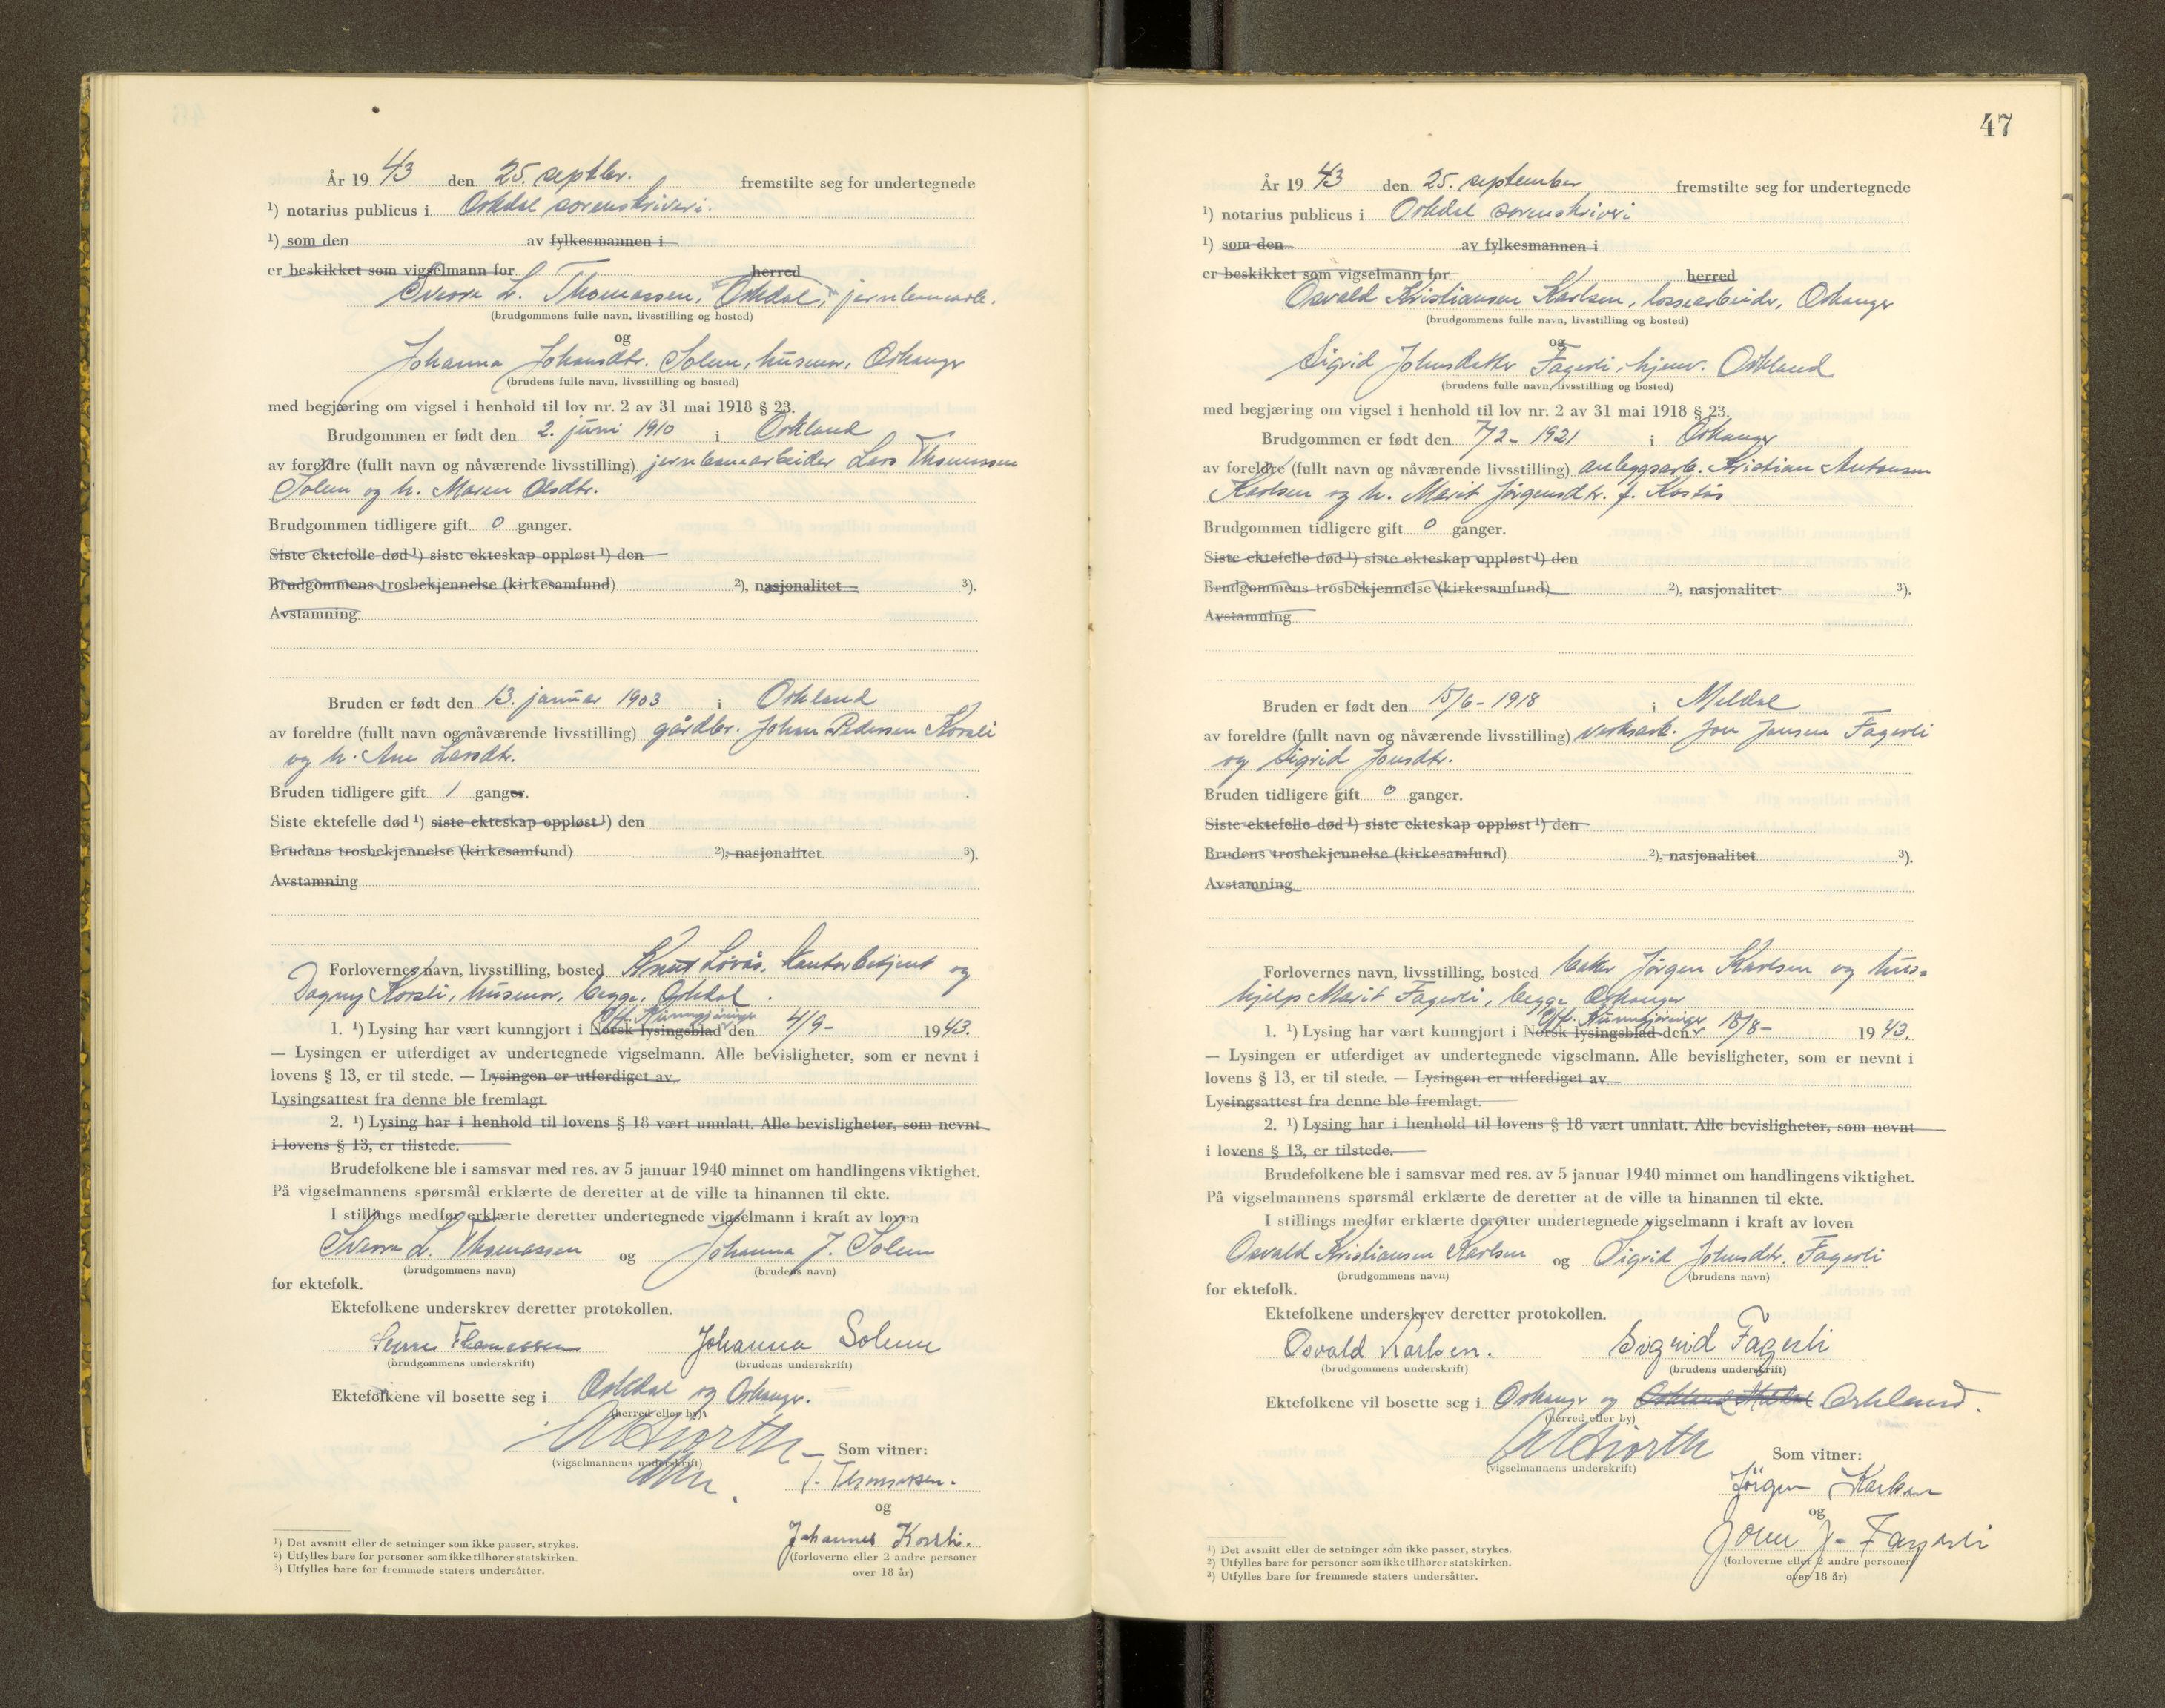 År 19 43 den 25. septbr. fremstilte seg for undertegnede
¹) notarius publicus i Orkdal sorenskriveri.
¹) som den av fylkesmannen i
er beskikket som vigselmann for herred
Sverre L. Thomassen, Orkdal, jernbanearb.
(brudgommens fulle navn, livsstilling og bosted)
og
Johanna Johansdtr. Solem, husmor, Orkanger
(brudens fulle navn, livsstilling og bosted)
med begjæring om vigsel i henhold til lov nr. 2 av 31 mai 1918 § 23.
Brudgommen er født den 2. juni 1910 i Orkland
av foreldre (fullt navn og nåværende livsstilling) jernbanearbeider Lars Thomassen
Solem og h. Maren Olsdtr.
Brudgommen tidligere gift 0 ganger.
Siste ektefelle død ¹) siste ekteskap oppløst ¹) den
Brudgommens trosbekjennelse (kirkesamfund) ²), nasjonalitet ³).
Avstamning
Bruden er født den 13. januar 1903 i Orkland
av foreldre (fullt navn og nåværende livsstilling) gårdbr. Johan Pedersen Korsli
og h. Ane Larsdtr.
Bruden tidligere gift 1 ganger.
Siste ektefelle død ¹) siste ekteskap oppløst ¹) den
Brudens trosbekjennelse (kirkesamfund) ²), nasjonalitet ³).
Avstamning
Forlovernes navn, livsstilling, bosted Knut Lövås, kontorbetjent og
Dagny Korsli, husmor, begge, Orkdal.
Off. Kunngjøringer
1. ¹) Lysing har vært kunngjort i Norsk lysingsblad den 4/9- 1943.
— Lysingen er utferdiget av undertegnede vigselmann. Alle bevisligheter, som er nevnt i
lovens § 13, er til stede. — Lysingen er utferdiget av
Lysingsattest fra denne ble fremlagt.
2. ¹) Lysing har i henhold til lovens § 18 vært unnlatt. Alle bevisligheter, som nevnt
i lovens § 13, er tilstede.
Brudefolkene ble i samsvar med res. av 5 januar 1940 minnet om handlingens viktighet.
På vigselmannens spørsmål erklærte de deretter at de ville ta hinannen til ekte.
I stillings medfør erklærte deretter undertegnede vigselmann i kraft av loven
Sverre L. Thomassen og Johanna J. Solem
(brudgommens navn) (brudens navn)
for ektefolk.
Ektefolkene underskrev deretter protokollen.
Sverre Thomassen Johanna Solem
(brudgommens underskrift) (brudens underskrift)
Ektefolkene vil bosette seg i Orkdal og Orkanger.
(herred eller by)
(vigselmannens underskrift) Som vitner:
Thomassen.
og
Johannes Korsli.
(forloverne eller 2 andre personer
over 18 år)
¹) Det avsnitt eller de setninger som ikke passer, strykes.
²) Utfylles bare for personer som ikke tilhører statskirken.
³) Utfylles bare for fremmede staters undersåtter.
47
År 19 43 den 25. september fremstilte seg for undertegnede
¹) notarius publicus i Orkdal sorenskriveri
¹) som den av fylkesmannen i
er beskikket som vigselmann for herred
Osvald Kristiansen Karlsen, lossearbeider, Orkanger
(brudgommens fulle navn, livsstilling og bosted)
og
Sigrid Johnsdatter Fagerli, hjemv. Orkland
(brudens fulle navn, livsstilling og bosted)
med begjæring om vigsel i henhold til lov nr. 2 av 31 mai 1918 § 23.
Brudgommen er født den 7/2- 1921 i Orkanger
av foreldre (fullt navn og nåværende livsstilling) anleggsarb. Kristian Antonsen
Karlsen og h. Marit Jørgensdtr. f.
Brudgommen tidligere gift 0 ganger.
Siste ektefelle død ¹) siste ekteskap oppløst ¹) den
Brudgommens trosbekjennelse (kirkesamfund) ²), nasjonalitet ³).
Avstamning
Bruden er født den 15/6- 1918 i Meldal
av foreldre (fullt navn og nåværende livsstilling) verksarb. Jon Jonsen Fagerli
og Sigrid Jonsdtr.
Bruden tidligere gift 0 ganger.
Siste ektefelle død ¹) siste ekteskap oppløst ¹) den
Brudens trosbekjennelse (kirkesamfund) ²), nasjonalitet ³).
Avstamning
Forlovernes navn, livsstilling, bosted baker Jørgen Karlsen og hus-
hjelp Marit Fagerli, begge Orkanger
Off. Kunngjøringer
1. ¹) Lysing har vært kunngjort i Norsk lysingsblad den 18/8- 1943.
— Lysingen er utferdiget av undertegnede vigselmann. Alle bevisligheter, som er nevnt i
lovens § 13, er til stede. — Lysingen er utferdiget av
Lysingsattest fra denne ble fremlagt.
2. ¹) Lysing har i henhold til lovens § 18 vært unnlatt. Alle bevisligheter, som nevnt
i lovens § 13, er tilstede.
Brudefolkene ble i samsvar med res. av 5 januar 1940 minnet om handlingens viktighet.
På vigselmannens spørsmål erklærte de deretter at de ville ta hinannen til ekte.
I stillings medfør erklærte deretter undertegnede vigselmann i kraft av loven
Osvald Kristiansen Karlsen og Sigrid Johnsdtr. Fagerli
(brudgommens navn) (brudens navn)
for ektefolk.
Ektefolkene underskrev deretter protokollen.
Osvald Karlsen. Sigrid Fagerli
(brudgommens underskrift) (brudens underskrift)
Ektefolkene vil bosette seg i Orkanger og Orkland Meldal Orkland.
(herred eller by)
(vigselmannens underskrift) Som vitner:
Jörgen Karlsen
og
John J. Fagerli
(forloverne eller 2 andre personer
over 18 år)
¹) Det avsnitt eller de setninger som ikke passer, strykes.
²) Utfylles bare for personer som ikke tilhører statskirken.
³) Utfylles bare for fremmede staters undersåtter.